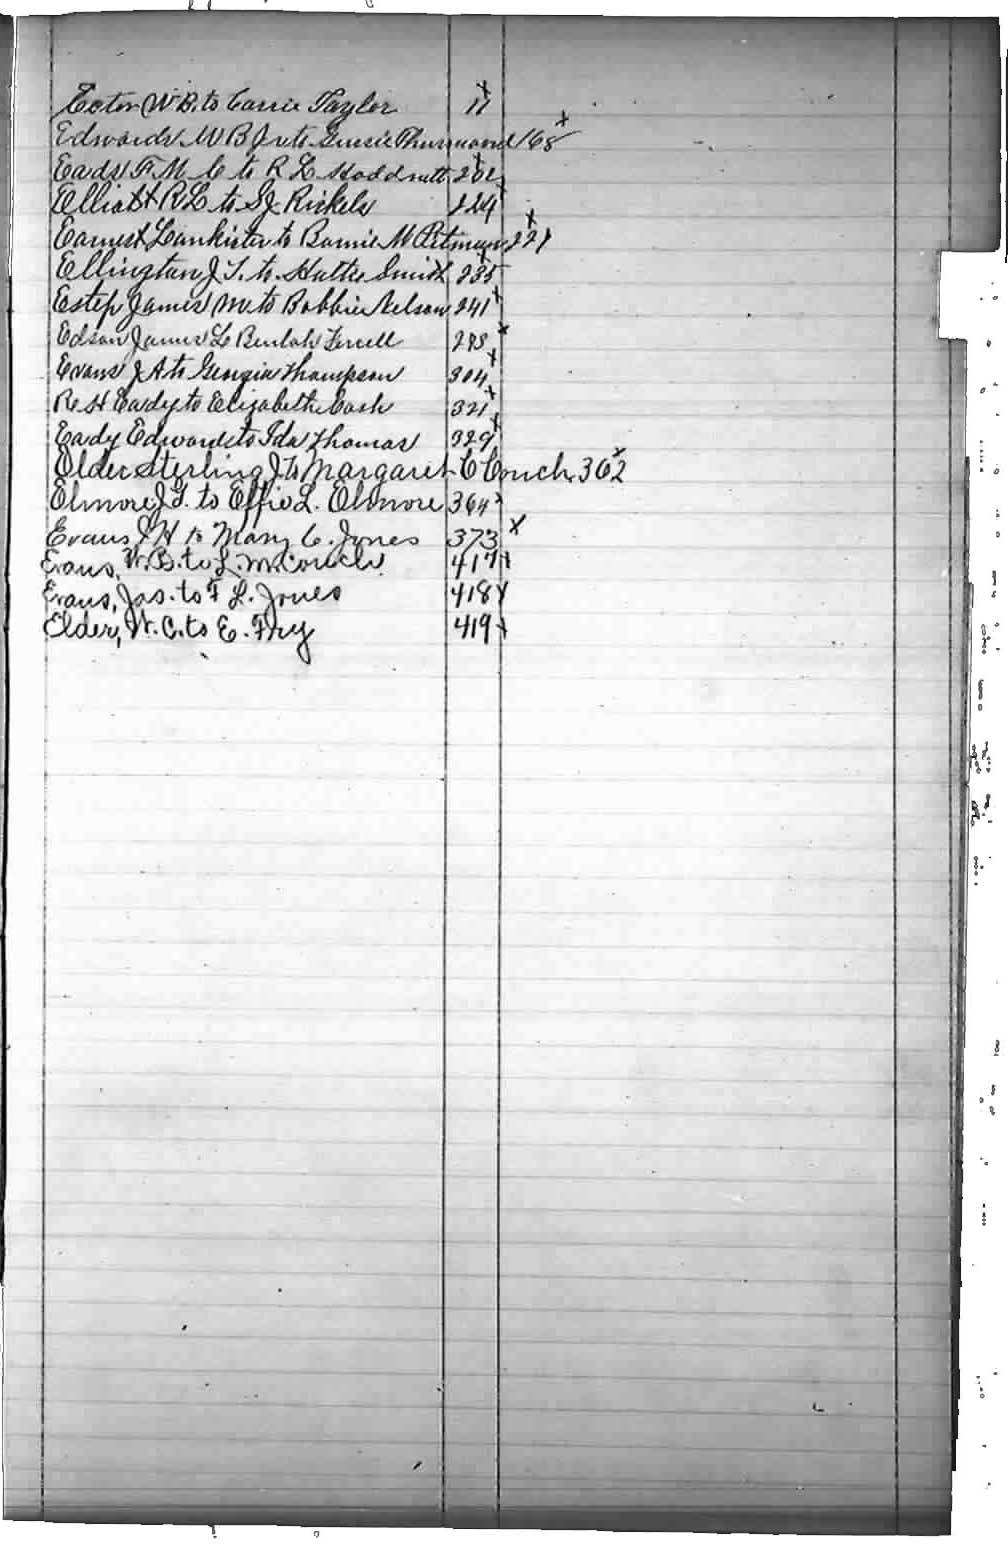 Ector W B. to Carrie Taylor 11 x
Edwards W B Jr to Gussie Thurmond 168 x
Eads F. M. C to R L Hoddnett 202 x
Elliott R L to S J. Rickels 224 x
Earnest Lankister to Bannie M Pitman 227 x
Ellington J T. to Hattie Smith 235
Estep James M to Bobbie Nelson 241 x
Edson James L Beulah Ferrell 298 x
Evans J A to Georgia Thompson 304 x
R H Eady to Elizabeth Cash 321 x
Eady Edward to Ida Thomas 329 x
Elder Sterling J. to Margaret C Couch, 362 x
Elmore J. T. to Effie L. Elmore 364 x
Evans J H to Mary C. Jones 373 x
Evans, W. B. to L. M. Couch. 417 x
Evans, Jas. to F L. Jones 418 x
Elder, W. C. to E. Fry 419 x